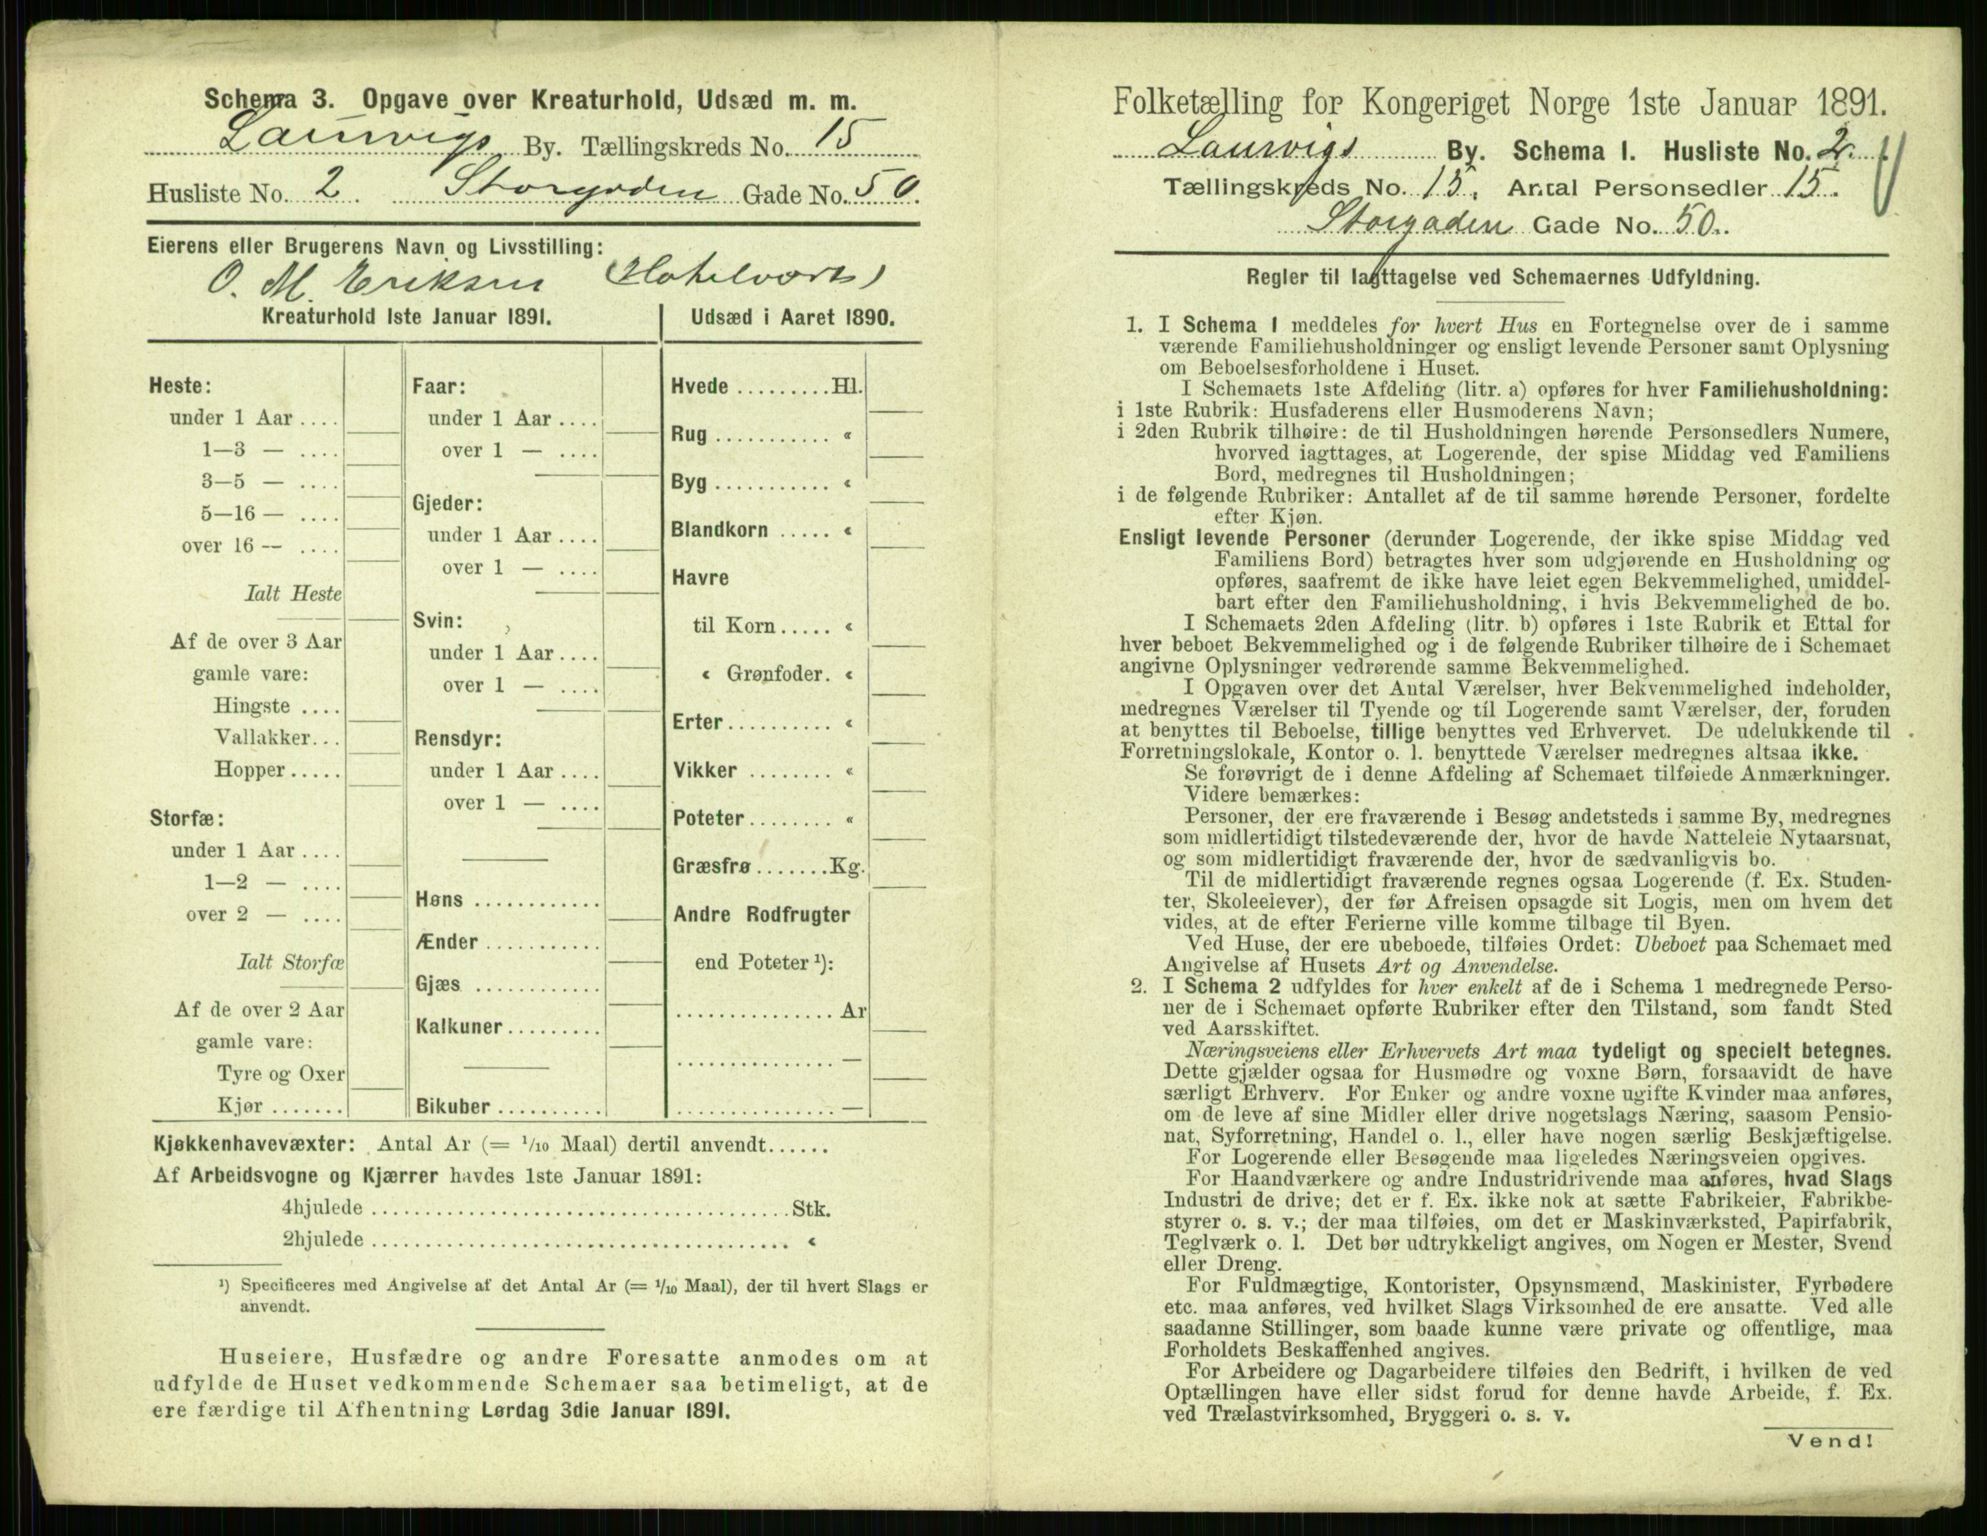 Schema 3. Opgave over Kreaturhold, Udsæd m. m.
Laurvigs By. Tællingskreds No. 15
Husliste No. 2. Storgaden Gade No. 50.
Eierens eller Brugerens Navn og Livsstilling:
O. M. Eriksen (Hotelvært)
Kreaturhold 1ste Januar 1891.
Heste:
under 1 Aar ....
1—3 — ....
3—5 — ....
5—16 — ....
over 16 — ....
Ialt Heste
Af de over 3 Aar
gamle vare:
Hingste ....
Vallakker...
Hopper.....
Storfæ:
under 1 Aar ....
1—2 — ....
over 2 — ....
Ialt Storfæ
Af de over 2 Aar
gamle vare:
Tyre og Oxer
Kjør .......
Faar:
under 1 Aar ....
over 1 — ....
Gjeder:
under 1 Aar ....
over 1 — ....
Svin:
under 1 Aar ....
over 1 — ....
Rensdyr:
under 1 Aar ....
over 1 — ....
Høns ............
Ænder...........
Gjæs ............
Kalkuner.........
Bikuber ..........
Udsæd i Aaret 1890.
Hvede .........Hl.
Rug ........... «
Byg ........... «
Blandkorn ..... «
Havre
til Korn..... «
« Grønfoder. «
Erter.......... «
Vikker ........ «
Poteter........ «
Græsfrø.......Kg.
Andre Rodfrugter
end Poteter ¹):
............... Ar
............... —
............... —
Kjøkkenhavevæxter: Antal Ar (= 1/10 Maal) dertil anvendt......
Af Arbeidsvogne og Kjærrer havdes 1ste Januar 1891:
4hjulede ....................................... Stk.
2hjulede ....................................... «
¹) Specificeres med Angivelse af det Antal Ar (= 1/10 Maal), der til hvert Slags er
anvendt.
Huseiere, Husfædre og andre Foresatte anmodes om at
udfylde de Huset vedkommende Schemaer saa betimeligt, at de
ere færdige til Afhentning Lørdag 3die Januar 1891.
Folketælling for Kongeriget Norge 1ste Januar 1891.
Laurvigs By. Schema 1. Husliste No. 2.
Tællingskreds No. 15. Antal Personsedler 15.
Storgaden Gade No. 50.
Regler til Iagttagelse ved Schemaernes Udfyldning.
1. I Schema 1 meddeles for hvert Hus en Fortegnelse over de i samme
værende Familiehusholdninger og ensligt levende Personer samt Oplysning
om Beboelsesforholdene i Huset.
I Schemaets 1ste Afdeling (litr. a) opføres for hver Familiehusholdning:
i 1ste Rubrik: Husfaderens eller Husmoderens Navn;
i 2den Rubrik tilhøire: de til Husholdningen hørende Personsedlers Numere,
hvorved iagttages, at Logerende, der spise Middag ved Familiens
Bord, medregnes til Husholdningen;
i de følgende Rubriker: Antallet af de til samme hørende Personer, fordelte
efter Kjøn.
Ensligt levende Personer (derunder Logerende, der ikke spise Middag ved
Familiens Bord) betragtes hver som udgjørende en Husholdning og
opføres, saafremt de ikke have leiet egen Bekvemmelighed, umiddel-
bart efter den Familiehusholdning, i hvis Bekvemmelighed de bo.
I Schemaets 2den Afdeling (litr. b) opføres i 1ste Rubrik et Ettal for
hver beboet Bekvemmelighed og i de følgende Rubriker tilhøire de i Schemaet
angivne Oplysninger vedrørende samme Bekvemmelighed.
I Opgaven over det Antal Værelser, hver Bekvemmelighed indeholder,
medregnes Værelser til Tyende og til Logerende samt Værelser, der, foruden
at benyttes til Beboelse, tillige benyttes ved Erhvervet. De udelukkende til
Forretningslokale, Kontor o. l. benyttede Værelser medregnes altsaa ikke.
Se forøvrigt de i denne Afdeling af Schemaet tilføiede Anmærkninger.
Videre bemærkes:
Personer, der ere fraværende i Besøg andetsteds i samme By, medregnes
som midlertidigt tilstedeværende der, hvor de havde Natteleie Nytaarsnat,
og som midlertidigt fraværende der, hvor de sædvanligvis bo.
Til de midlertidigt fraværende regnes ogsaa Logerende (f. Ex. Studen-
ter, Skoleelever), der før Afreisen opsagde sit Logis, men om hvem det
vides, at de efter Ferierne ville komme tilbage til Byen.
Ved Huse, der ere ubeboede, tilføies Ordet: Ubeboet paa Schemaet med
Angivelse af Husets Art og Anvendelse.
2. I Schema 2 udfyldes for hver enkelt af de i Schema 1 medregnede Perso-
ner de i Schemaet opførte Rubriker efter den Tilstand, som fandt Sted
ved Aarsskiftet.
Næringsveiens eller Erhvervets Art maa tydeligt og specielt betegnes.
Dette gjælder ogsaa for Husmødre og voxne Børn, forsaavidt de have
særligt Erhverv. For Enker og andre voxne ugifte Kvinder maa anføres,
om de leve af sine Midler eller drive nogetslags Næring, saasom Pensio-
nat, Syforretning, Handel o. l., eller have nogen særlig Beskjæftigelse.
For Logerende eller Besøgende maa ligeledes Næringsveien opgives.
For Haandværkere og andre Industridrivende maa anføres, hvad Slags
Industri de drive; det er f. Ex. ikke nok at sætte Fabrikeier, Fabrikbe-
styrer o. s. v.; der maa tilføies, om det er Maskinværksted, Papirfabrik,
Teglværk o. l. Det bør udtrykkeligt angives, om Nogen er Mester, Svend
eller Dreng.
For Fuldmægtige, Kontorister, Opsynsmænd, Maskinister, Fyrbødere
etc. maa anføres, ved hvilket Slags Virksomhed de ere ansatte. Ved alle
saadanne Stillinger, som baade kunne være private og offentlige, maa
Forholdets Beskaffenhed angives.
For Arbeidere og Dagarbeidere tilføies den Bedrift, i hvilken de ved
Optællingen have eller sidst forud for denne havde Arbeide, f. Ex.
ved Trælastvirksomhed, Bryggeri o. s. v.
Vend!